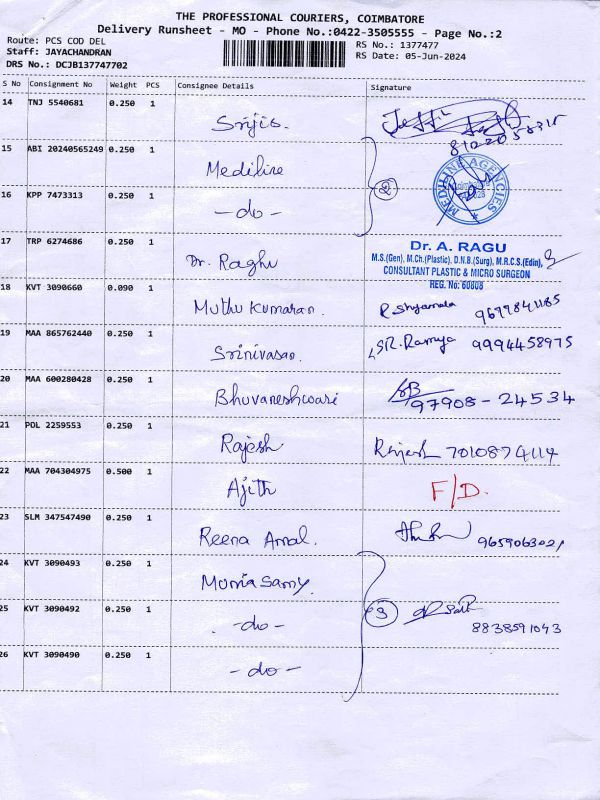 THE PROFESSIONAL COURIERS, COIMBATORE
Delivery Runsheet - MO - Phone No.:0422-3505555 - Page No.:2
Route: PCS COD DEL
Staff: JAYACHANDRAN
DRS No.: DCJB137747702
RS No.: 1377477
RS Date: 05-Jun-2024
S No Consignment No Weight PCS Consignee Details Signature
14 TNJ 5540681 0.250 1 Srijis.
8102058315
15 ABI 20240565249 0.250 1 Mediline
MEDILINE AGENCIES
16 KPP 7473313 0.250 1 -do-
2
17 TRP 6274686 0.250 1 Dr. Raghu
Dr. A. RAGU
M.S.(Gen), M.Ch.(Plastic), D.N.B.(Surg), M.R.C.S.(Edin),
CONSULTANT PLASTIC & MICRO SURGEON
REG. No: 60808
18 KVT 3090660 0.090 1 Muthu Kumaran. R Shyamala 9677841185
19 MAA 865762440 0.250 1 Srinivasan. SR. Ramya 9994458975
20 MAA 600280428 0.250 1 Bhuvaneshwari SB 97908-24534
21 POL 2259553 0.250 1 Rajesh Rajesh 7010874114
22 MAA 704304975 0.500 1 Ajith F/D.
23 SLM 347547490 0.250 1 Reena Amal. 9659063021
24 KVT 3090493 0.250 1 Muniasamy.
25 KVT 3090492 0.250 1 -do- 3
8838591043
26 KVT 3090490 0.250 1 -do-